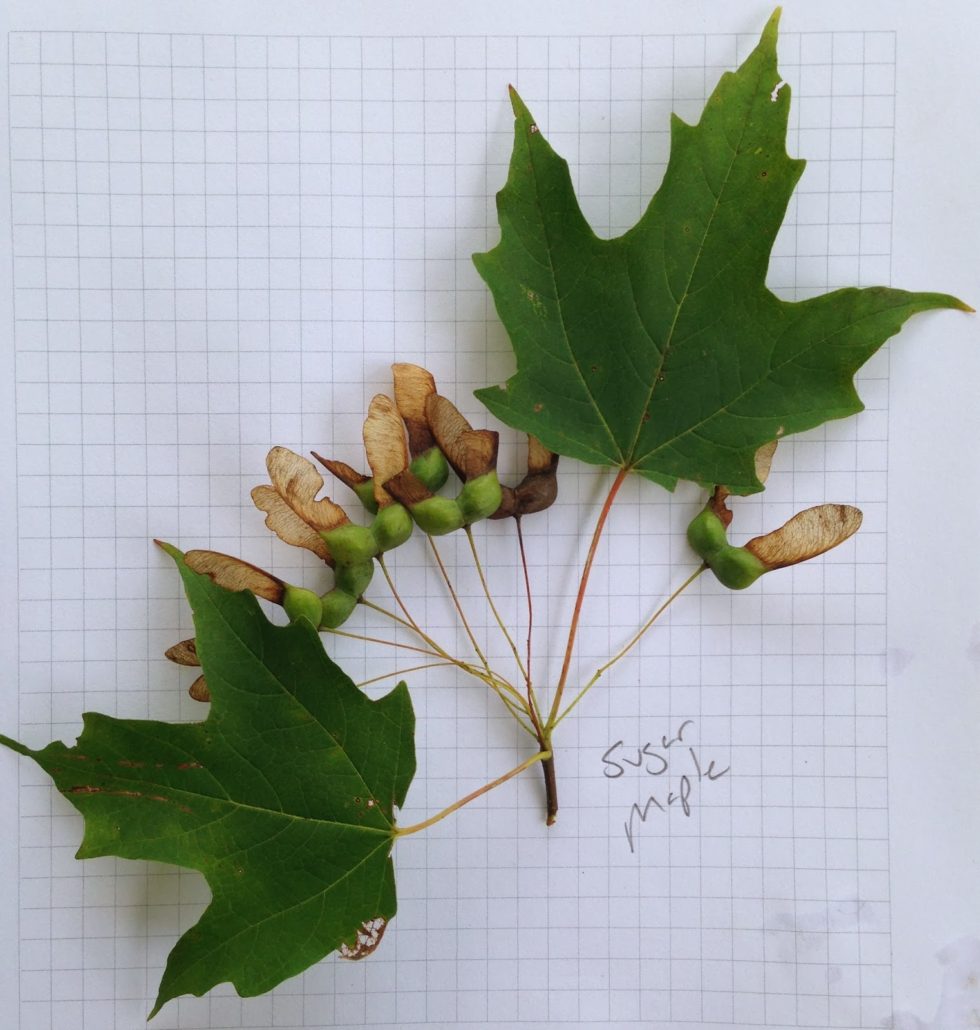 Sugar
Maple